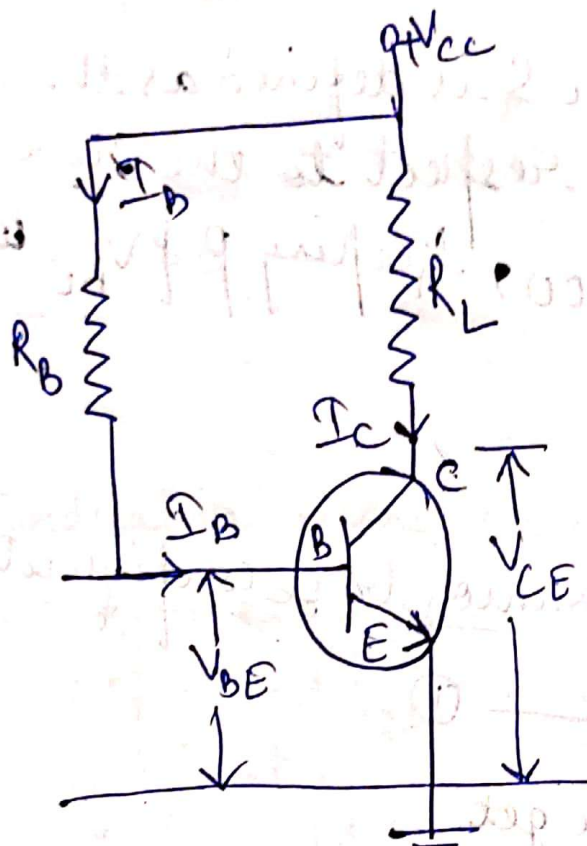 +VCC
IB
RB
RL
IC
C
IB
B
VCE
E
VBE